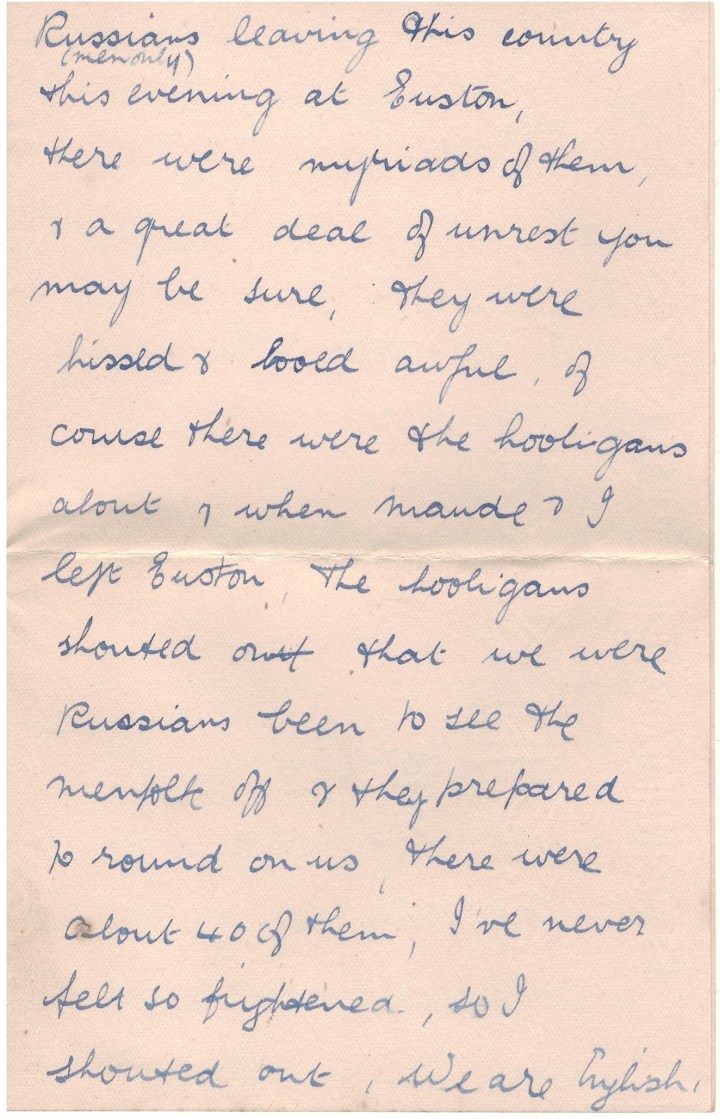 Russians leaving this country
(men only)
this evening at Euston,
there were myriads of them,
& a great deal of unrest you
may be sure, they were
hissed & booed awful, of
course there were the hooligans
about & when Maude & I
left Euston, the hooligans
shouted out that we were
Russians been to see the
menfolk off & they prepared
to round on us, there were
about 40 of them, I've never
felt so frightened, so I
shouted out, We are English,